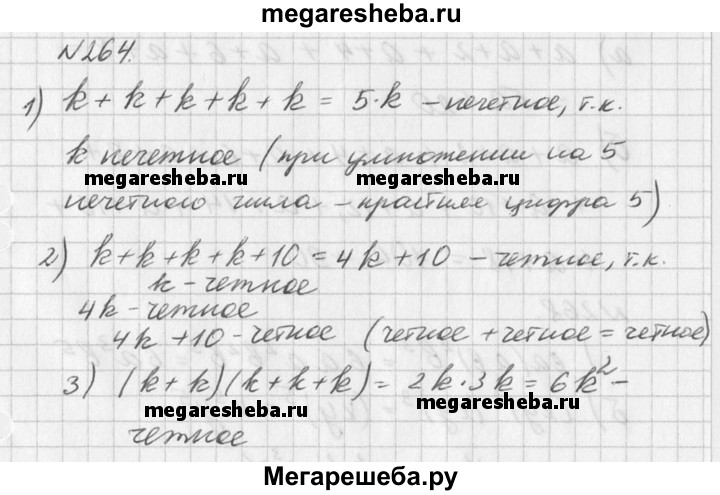 megaresheba.ru
№264.
1) k + k + k + k + k = 5·k – нечетное, т.к.
k нечетное (при умножении на 5
megaresheba.ru megaresheba.ru
нечетного числа – цифра 5)
2) k+k+k+k+10 = 4k+10 – четное, т.к.
k – четное
4k – четное
4k+10 – четное (четное + четное = четное)
3) (k+k)(k+k+k) = 2k·3k = 6k² –
megaresheba.ru megaresheba.ru
четное
Мегарешеба.ру